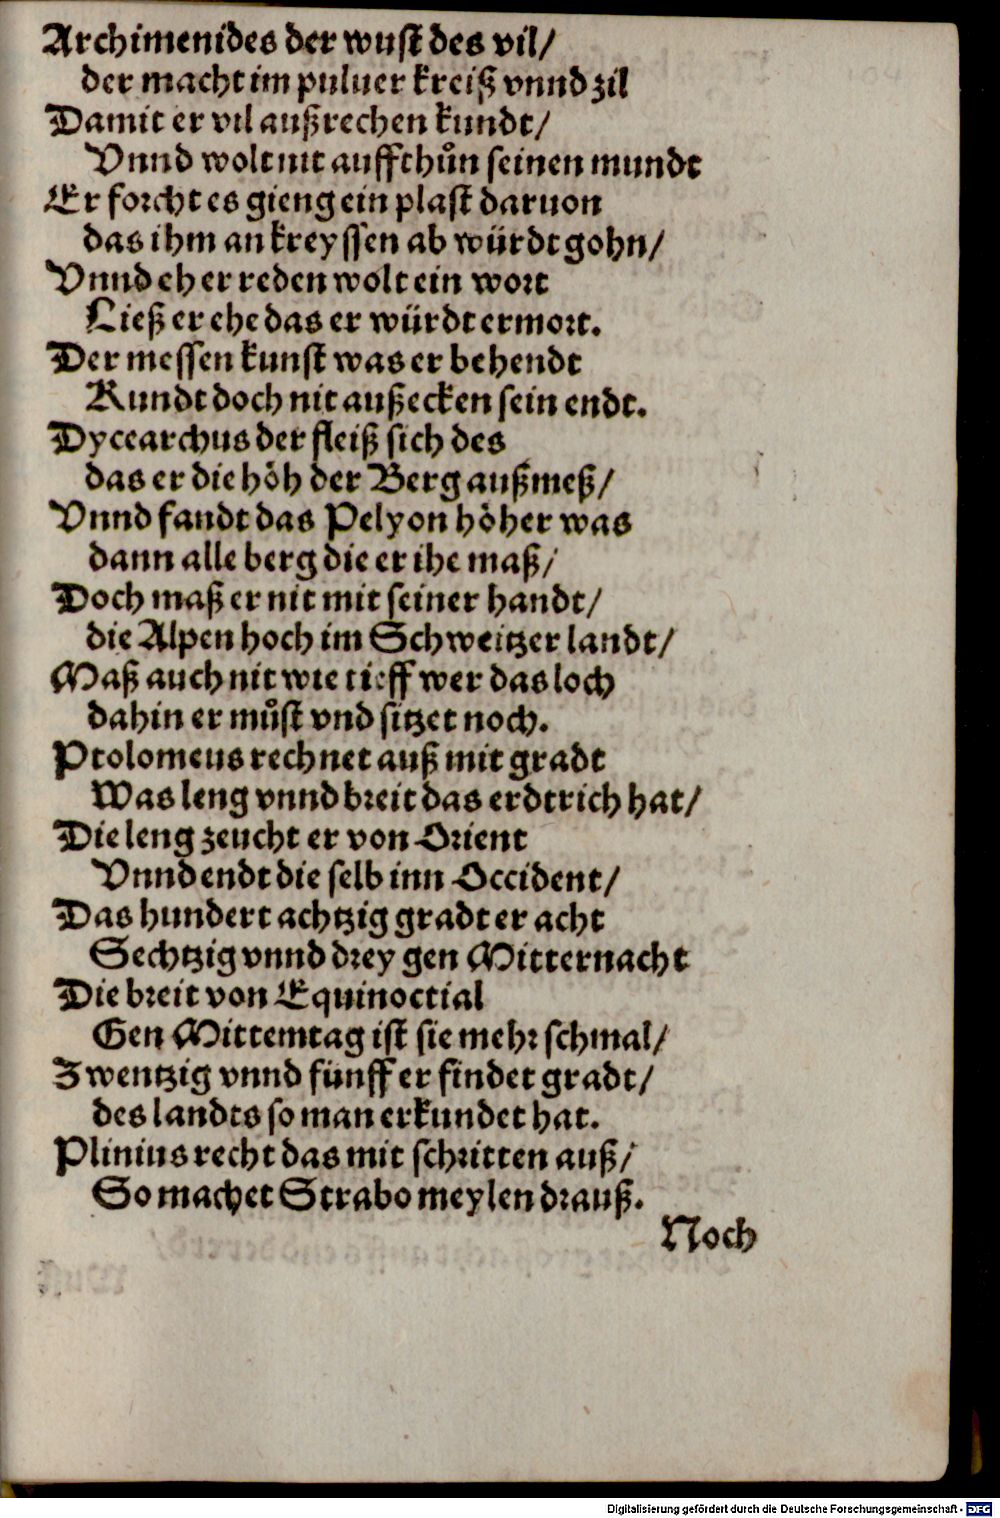 Archimenides der wust des vil/
der macht im puluer kreiß vnnd zil
Damit er vil außrechen kundt/
Vnnd wolt nit auffthůn seinen mundt
Er forcht es gieng ein plast daruon
das ihm an kreyssen ab würdt gohn/
Vnnd eh er reden wolt ein wort
Ließ er ehe das er würdt ermort.
Der messen kunst was er behendt
Kundt doch nit außecken sein endt.
Dycearchus der fleiß sich des
das er die hôh der Berg außmeß/
Vnnd fandt das Pelyon hôher was
dann alle berg die er ihe maß/
Doch maß er nit mit seiner handt/
die Alpen hoch im Schweitzer landt/
Maß auch nit wie tieff wer das loch
dahin er můst vnd sitzet noch.
Ptolomeus rechnet auß mit gradt
Was leng vnnd breit das erdtrich hat/
Die leng zeucht er von Orient
Vnnd endt die selb inn Occident/
Das hundert achtzig gradt er acht
Sechtzig vnnd drey gen Mitternacht
Die breit von Equinoctial
Gen Mittemtag ist sie mehr schmal/
Zwentzig vnnd fünff er findet gradt/
des landts so man erkundet hat.
Plinius recht das mit schritten auß/
So machet Strabo meylen drauß.
Noch
Digitalisierung gefördert durch die Deutsche Forschungsgemeinschaft - DFG